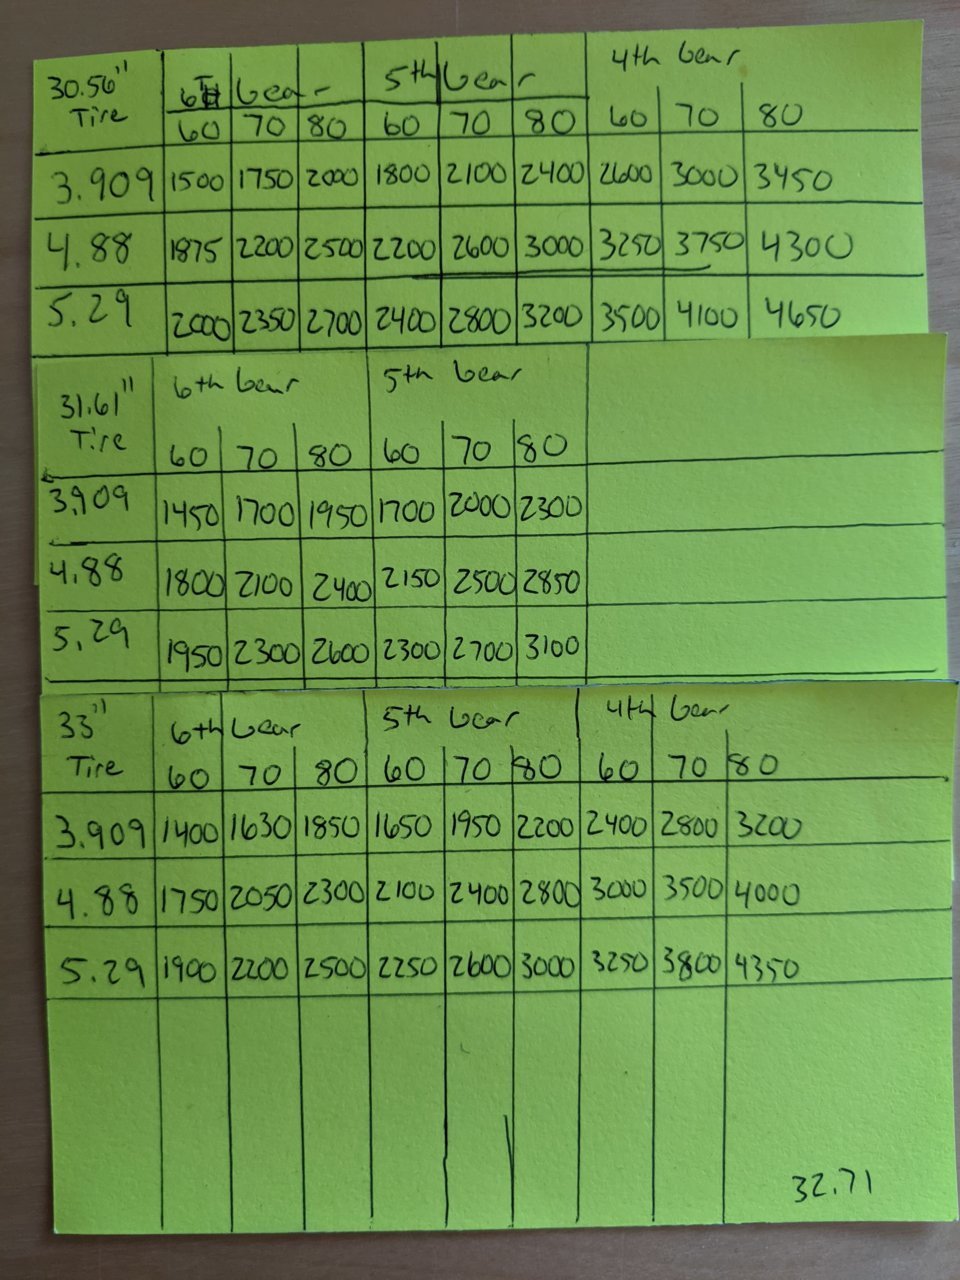 30.56" Tire 6TH Gear 5th Gear 4th Gear
60 70 80 60 70 80 60 70 80
3.909 1500 1750 2000 1800 2100 2400 2600 3000 3450
4.88 1875 2200 2500 2200 2600 3000 3250 3750 4300
5.29 2000 2350 2700 2400 2800 3200 3500 4100 4650
31.61" Tire 6th Gear 5th Gear
60 70 80 60 70 80
3.909 1450 1700 1950 1700 2000 2300
4.88 1800 2100 2400 2150 2500 2850
5.29 1950 2300 2600 2300 2700 3100
33" Tire 6th Gear 5th Gear 4th Gear
60 70 80 60 70 80 60 70 80
3.909 1400 1630 1850 1650 1950 2200 2400 2800 3200
4.88 1750 2050 2300 2100 2400 2800 3000 3500 4000
5.29 1900 2200 2500 2250 2600 3000 3250 3800 4350
32.71